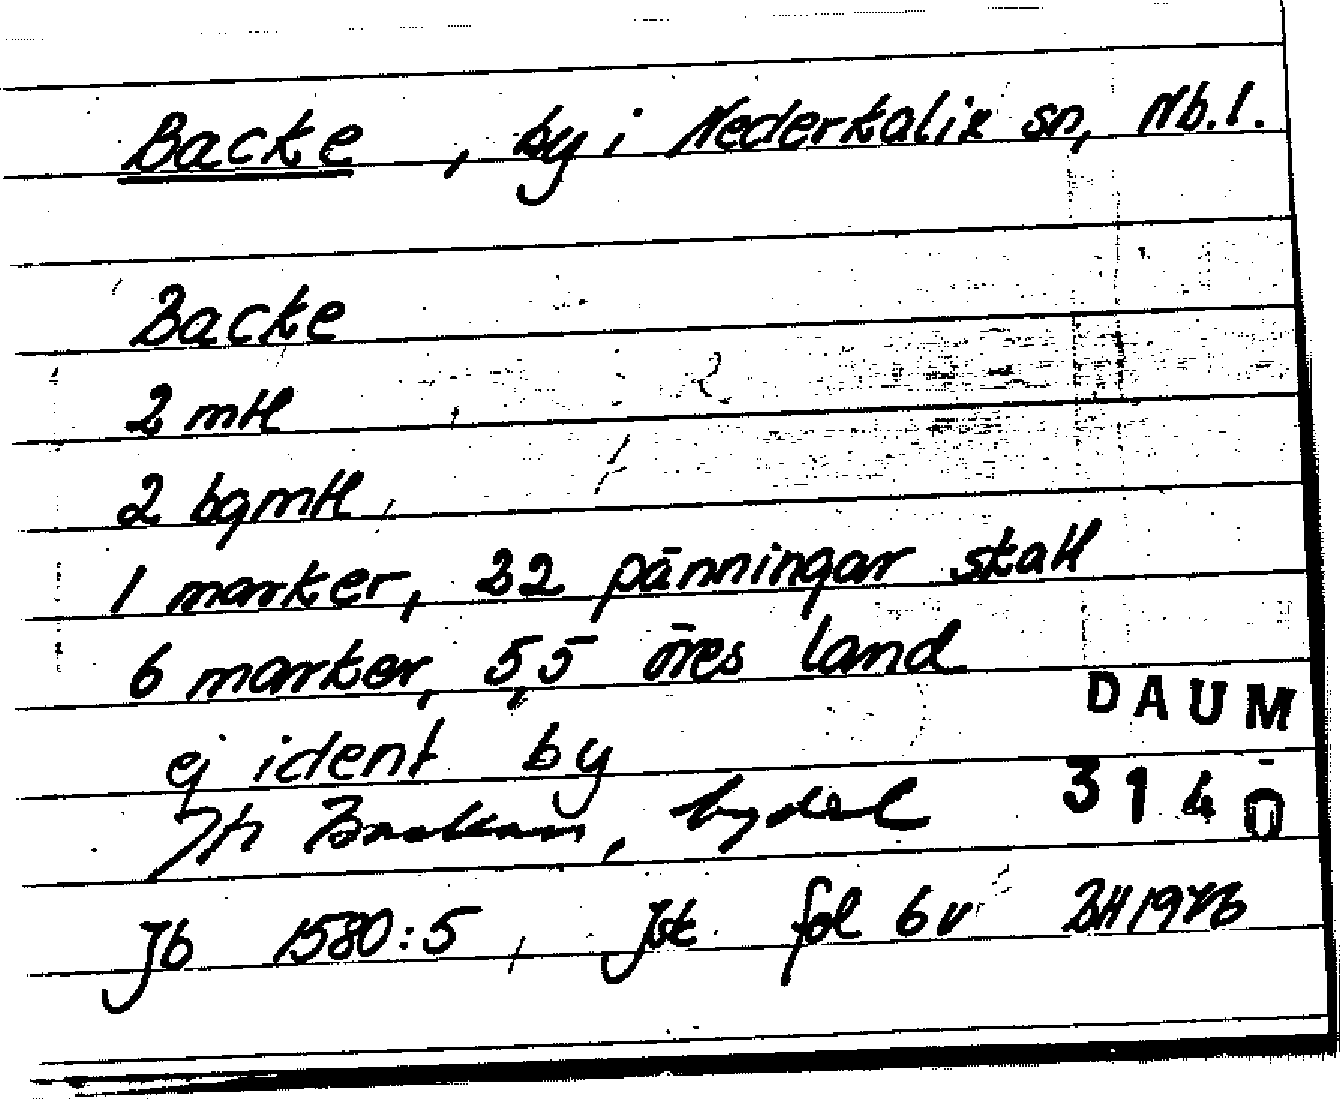 Backe, by i Nederkalix sn, Nb.l.
Backe
2 mtl
2 bgmtl
1 marker, 22 pänningar skatt
6 marker, 5,5 öres land
ej ident by
DAUM
bydel
3140
Jb 1580:5, Jbk fol 6v BH 1976